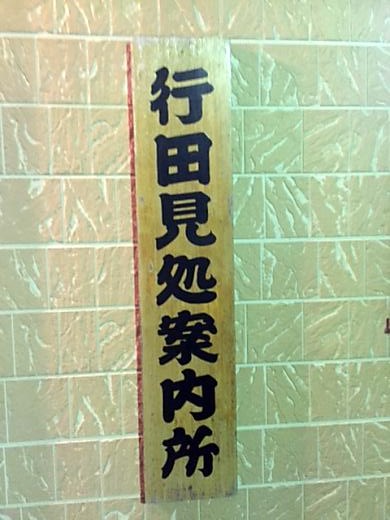 行田見処案内所